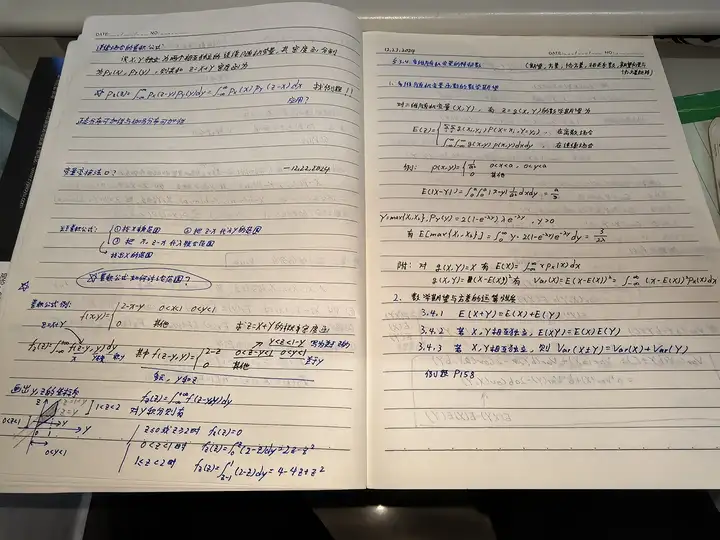 DATE: NO.
连续场合的卷积公式:
设X,Y 为两个相互独立的连续随机变量,其密度函数分别
为Px(x),Py(y),则其和 Z=X+Y 密度函数为
Pz(z)=∫₋∞^∞ Px(z-y)Py(y)dy=∫₋∞^∞ Px(x)Py(z-x)dx
应用?
正态分布可加性
变量变换法?
—12.22.2024
卷积公式:
① 找X的范围 ② 把 z-x 代入Y的范围
找出X的范围
☆ 卷积公式如何讨论范围?
卷积公式例:
f(x,y)= { 2-x-y 0<x<1 0<y<1
0 其他 求 Z=X+Y 的概率密度函数
Z=X+Y
y<z<1-y
fz(z)=∫₋∞^+∞ f(z-y,y)dy 其中 f(z-y,y)= { 2-z 0<z-y<1 0<y<1
0 其他
fz(z)=∫₋∞^+∞ f(z-y,y)dy
画出y,z的坐标系
对y积分则有
1<z<2
z≤0或z≥2时 fz(z)=0
0<z<1时 fz(z)=∫₀^z(2-z)dy=2z-z²
1<z<2时 fz(z)=∫_{z-1}^1(2-z)dy=4-4z+z²
0<y<1
12.23.2024
DATE: NO.
§3.4 多维随机变量的特征数
(期望,方差,协方差,相关系数,
1. 多维随机变量函数的数学期望
对二维随机变量(X,Y),有 Z=g(X,Y)的数学期望为
E(Z)= { ΣΣ g(xᵢ,yⱼ)P(X=xᵢ,Y=yⱼ),在离散场合
∫₋∞^∞∫₋∞^∞ g(x,y)p(x,y)dxdy,在连续场合
例: p(x,y)= { 1/a² 0<x<a,0<y<a
0 其他
E(|X-Y|)=∫₀^a∫₀^a|x-y|1/a² dxdy=a/3
Y=max{X₁,X₂},Py(y)=2(1-e^{-λy})λe^{-λy},y>0
有 E[max{X₁,X₂}]=∫₀^∞ y·2(1-e^{-λy})λe^{-λy}dy=3/2λ
附:对 g(X,Y)=X 有 E(X)=∫₋∞^∞ xPx(x)dx
g(X,Y)=(X-E(X))² 有 Var(X)=E(X-E(X))²=∫₋∞^∞(x-E(X))²Px(x)dx
2. 数学期望与方差的运算性质
3.4.1 E(X+Y)=E(X)+E(Y)
3.4.2 若 X,Y相互独立,E(XY)=E(X)E(Y)
3.4.3 若 X,Y相互独立,则 Var(X±Y)=Var(X)+Var(Y)
例题 P158